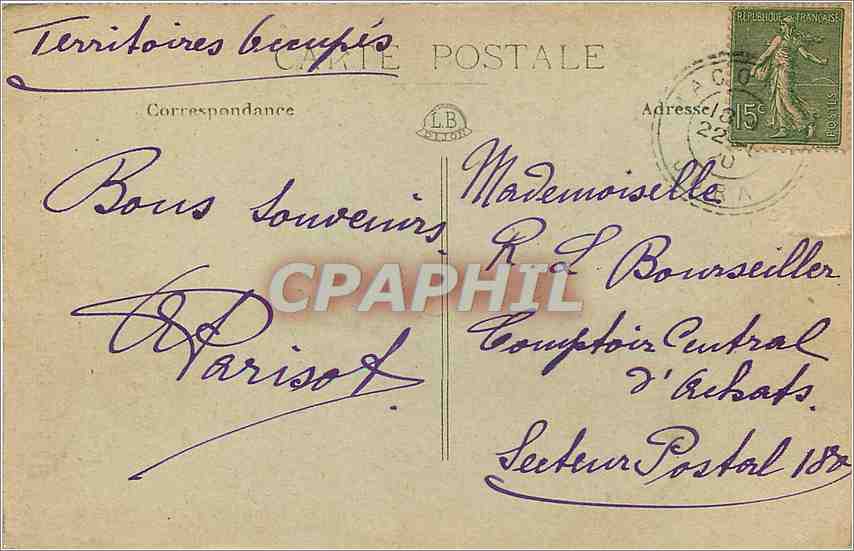 Territoires Occupés
CARTE POSTALE
RÉPUBLIQUE FRANÇAISE
15c
POSTES
Correspondance
LB
DIJON
Adresse
18
22
JURA
Bons souvenirs.
Parisot.
Mademoiselle
R L Bourseiller
Comptoir Central
d'Achats.
Secteur Postal 180
CPAPHIL